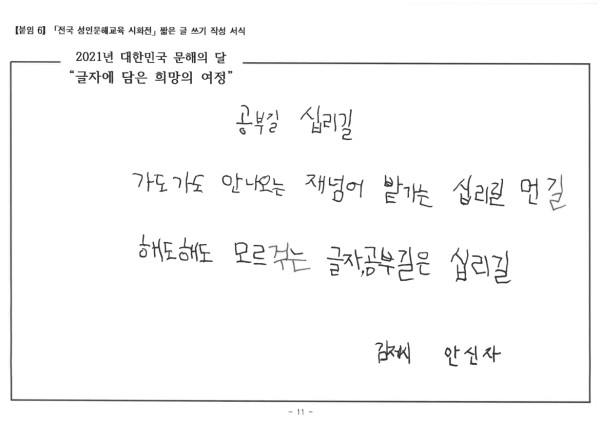 【붙임 6】「전국 성인문해교육 시화전」 짧은 글 쓰기 작성 서식
2021년 대한민국 문해의 달
“글자에 담은 희망의 여정”
공부길 십리길
가도가도 안나오는 재넘어 밭가는 십리길 먼길
해도해도 모르겄는 글자,공부길은 십리길
김제시 안신자
- 11 -